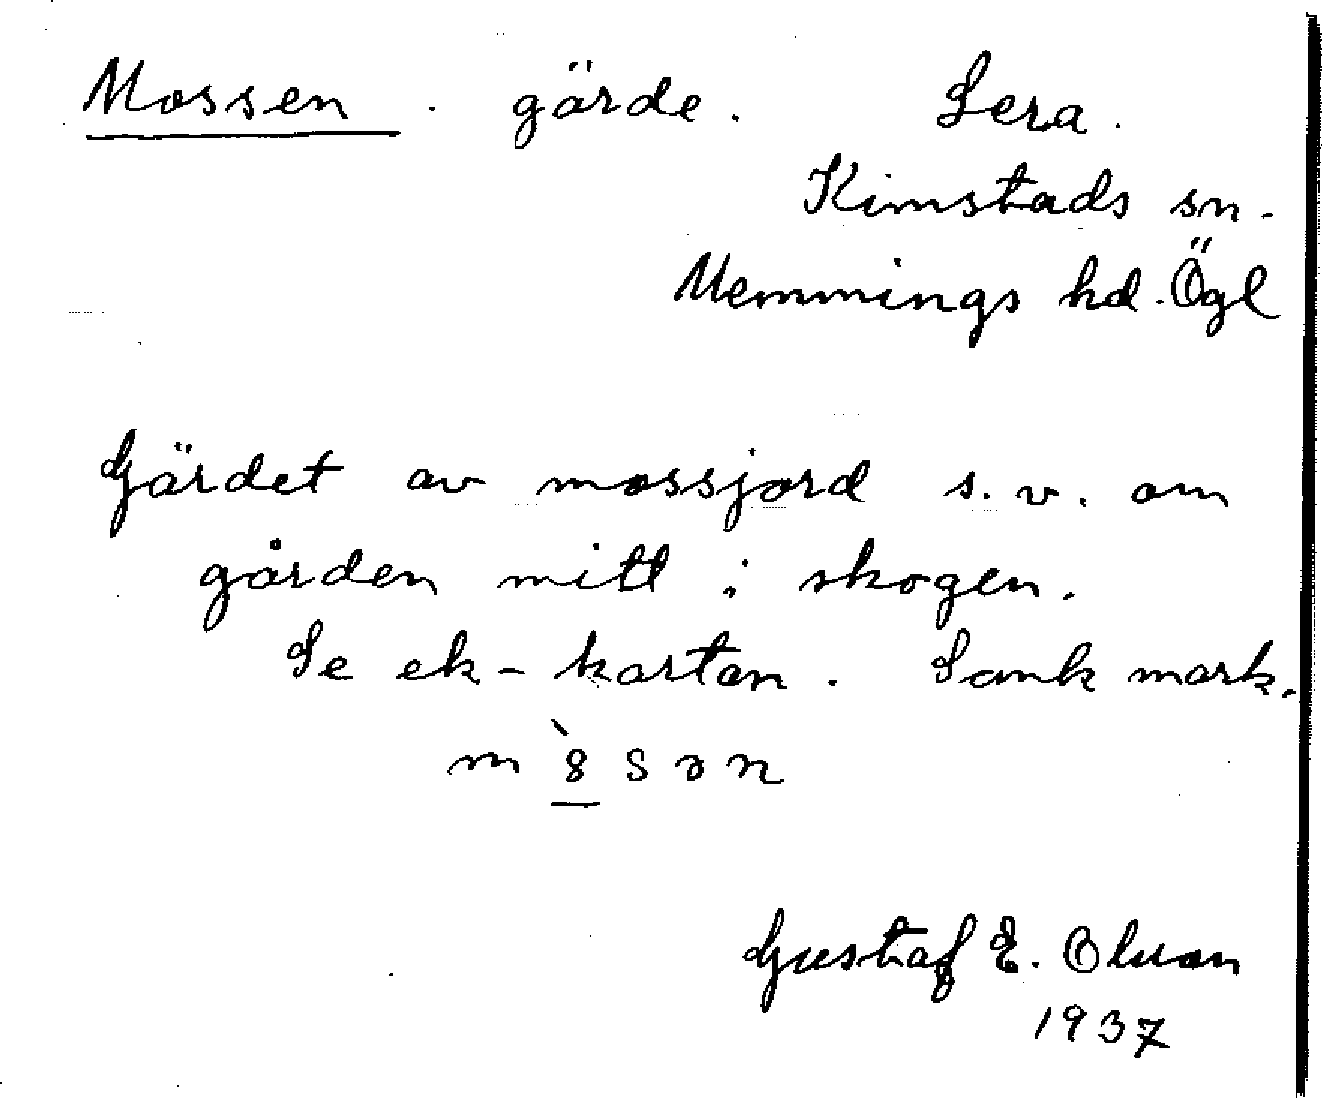 Mossen. gärde. Lera.
Kimstads sn.
Memmings hd. Ögl
Gärdet av mossjord s.v. om
gården mitt i skogen.
Se ek-kartan. Sank mark.
m 8̀ s ə n
Gustaf E. Olsson
1937